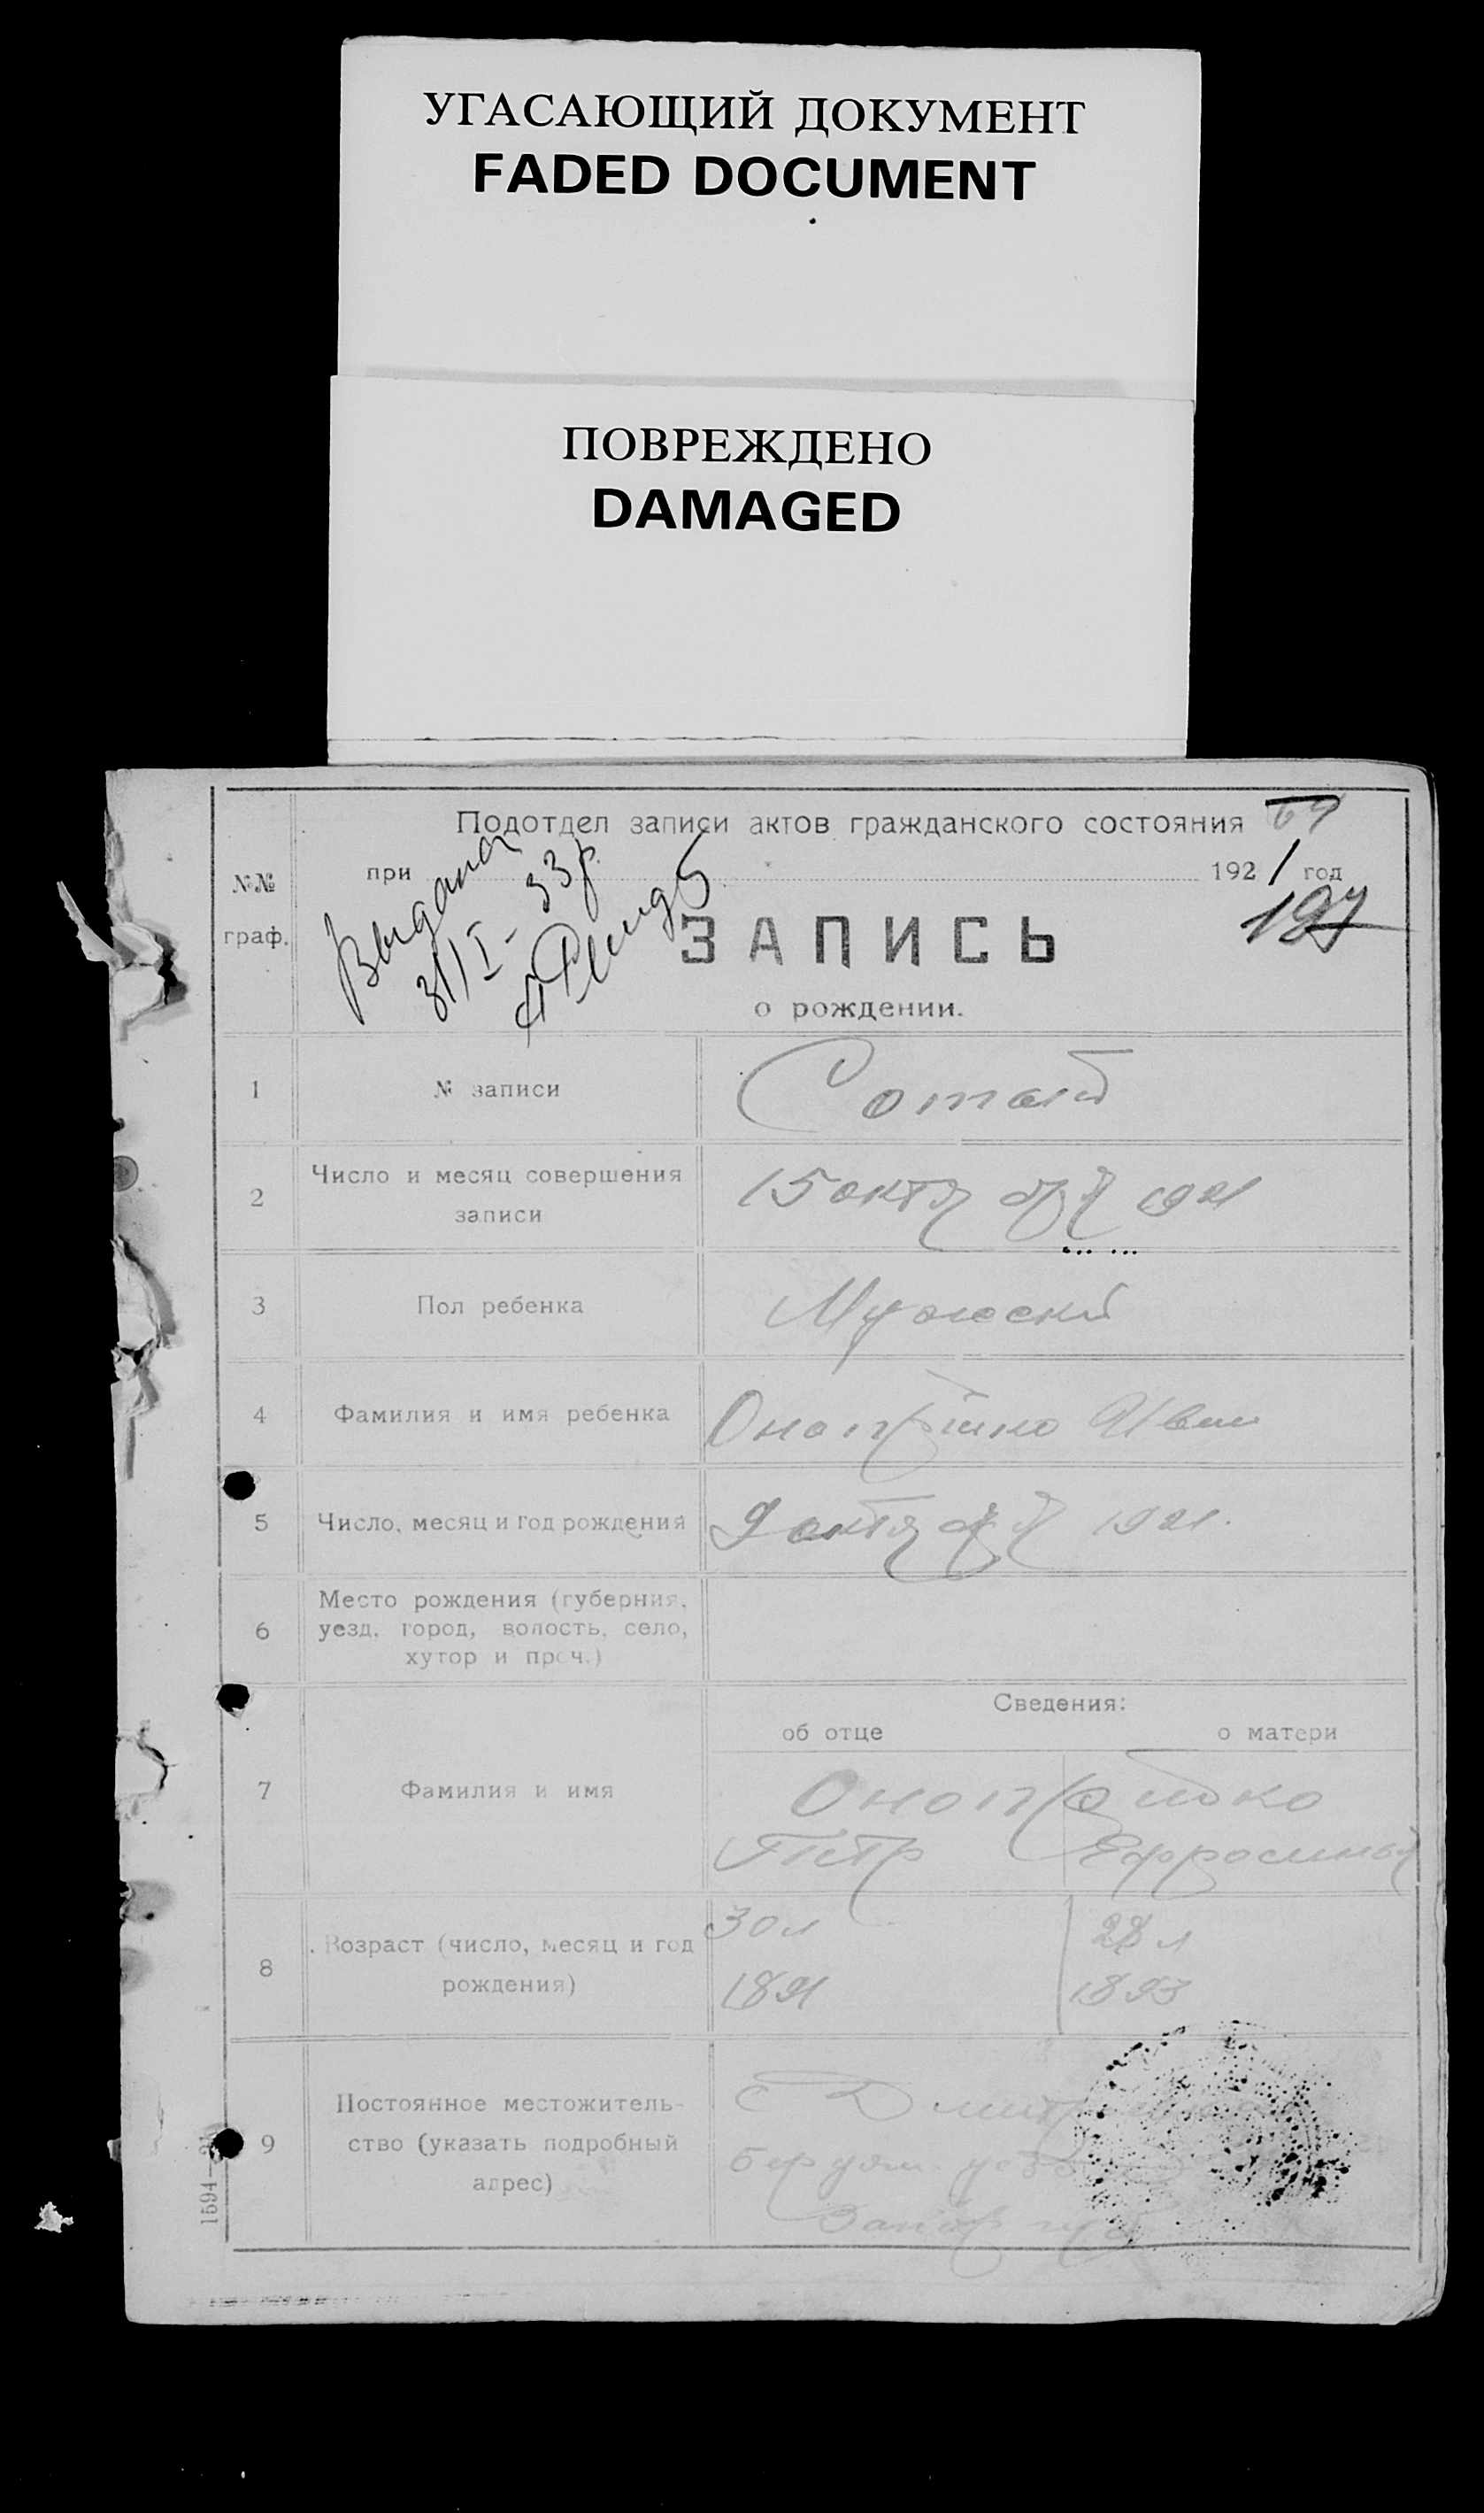 УГАСАЮЩИЙ ДОКУМЕНТ
FADED DOCUMENT
ПОВРЕЖДЕНО
DAMAGED
Подотдел записи актов гражданского состояния
при 1921 год
№№
граф.
Выдана
31/I-33р.
ЗАПИСЬ
о рождении.
1 № записи Сотый
2 Число и месяц совершения
записи 15 октября 1921
3 Пол ребенка Мужской
4 Фамилия и имя ребенка Оноприйко Иван
5 Число, месяц и год рождения 9 октября 1921.
6 Место рождения (губерния,
уезд, город, волость, село,
хутор и проч.)
Сведения:
об отце о матери
7 Фамилия и имя Оноприйко
Петр Ефросинья
8 Возраст (число, месяц и год
рождения)
30 л 28 л
1891 1893
9 Постоянное местожитель-
ство (указать подробный
адрес)
с
Бердян. уезд
Запор губ
1594